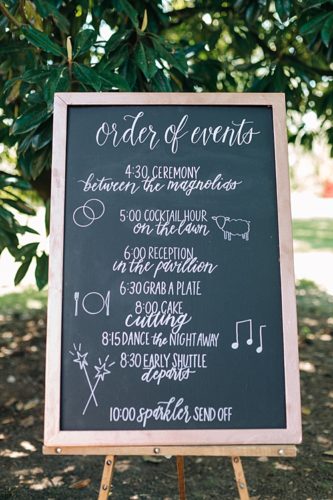 order of events
4:30 CEREMONY
between the magnolias
5:00 COCKTAIL HOUR
on the lawn
6:00 RECEPTION
in the pavilion
6:30 GRAB A PLATE
8:00 CAKE
cutting
8:15 DANCE the NIGHT AWAY
8:30 EARLY SHUTTLE
departs
10:00 sparkler SEND OFF